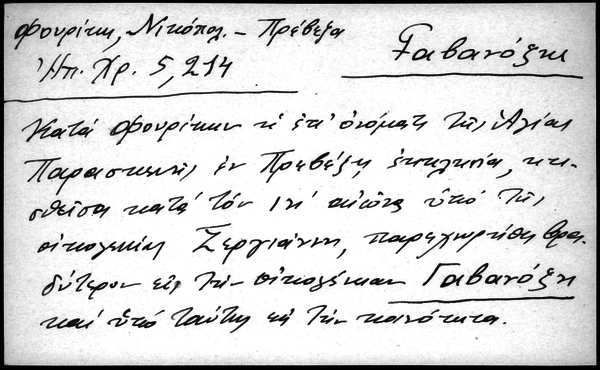 Φουρίκη, Νικόπολ. – Πρέβεζα
Ἠπ. Χρ. 5, 214
Γαβανόζη
Κατά Φουρίκην ἡ ἐπ' ὀνόματι τῆς Ἁγίας
Παρασκευῆς ἐν Πρεβέζῃ ἐκκλησία, κτι-
σθεῖσα κατά τόν ΙΗ' αἰῶνα ὑπό τῆς
οἰκογενείας Ζεργιάννη, παρεχωρήθη βρα-
δύτερον εἰς τήν οἰκογένειαν Γαβανόζη
καί ὑπό ταύτης εἰς τήν κοινότητα.